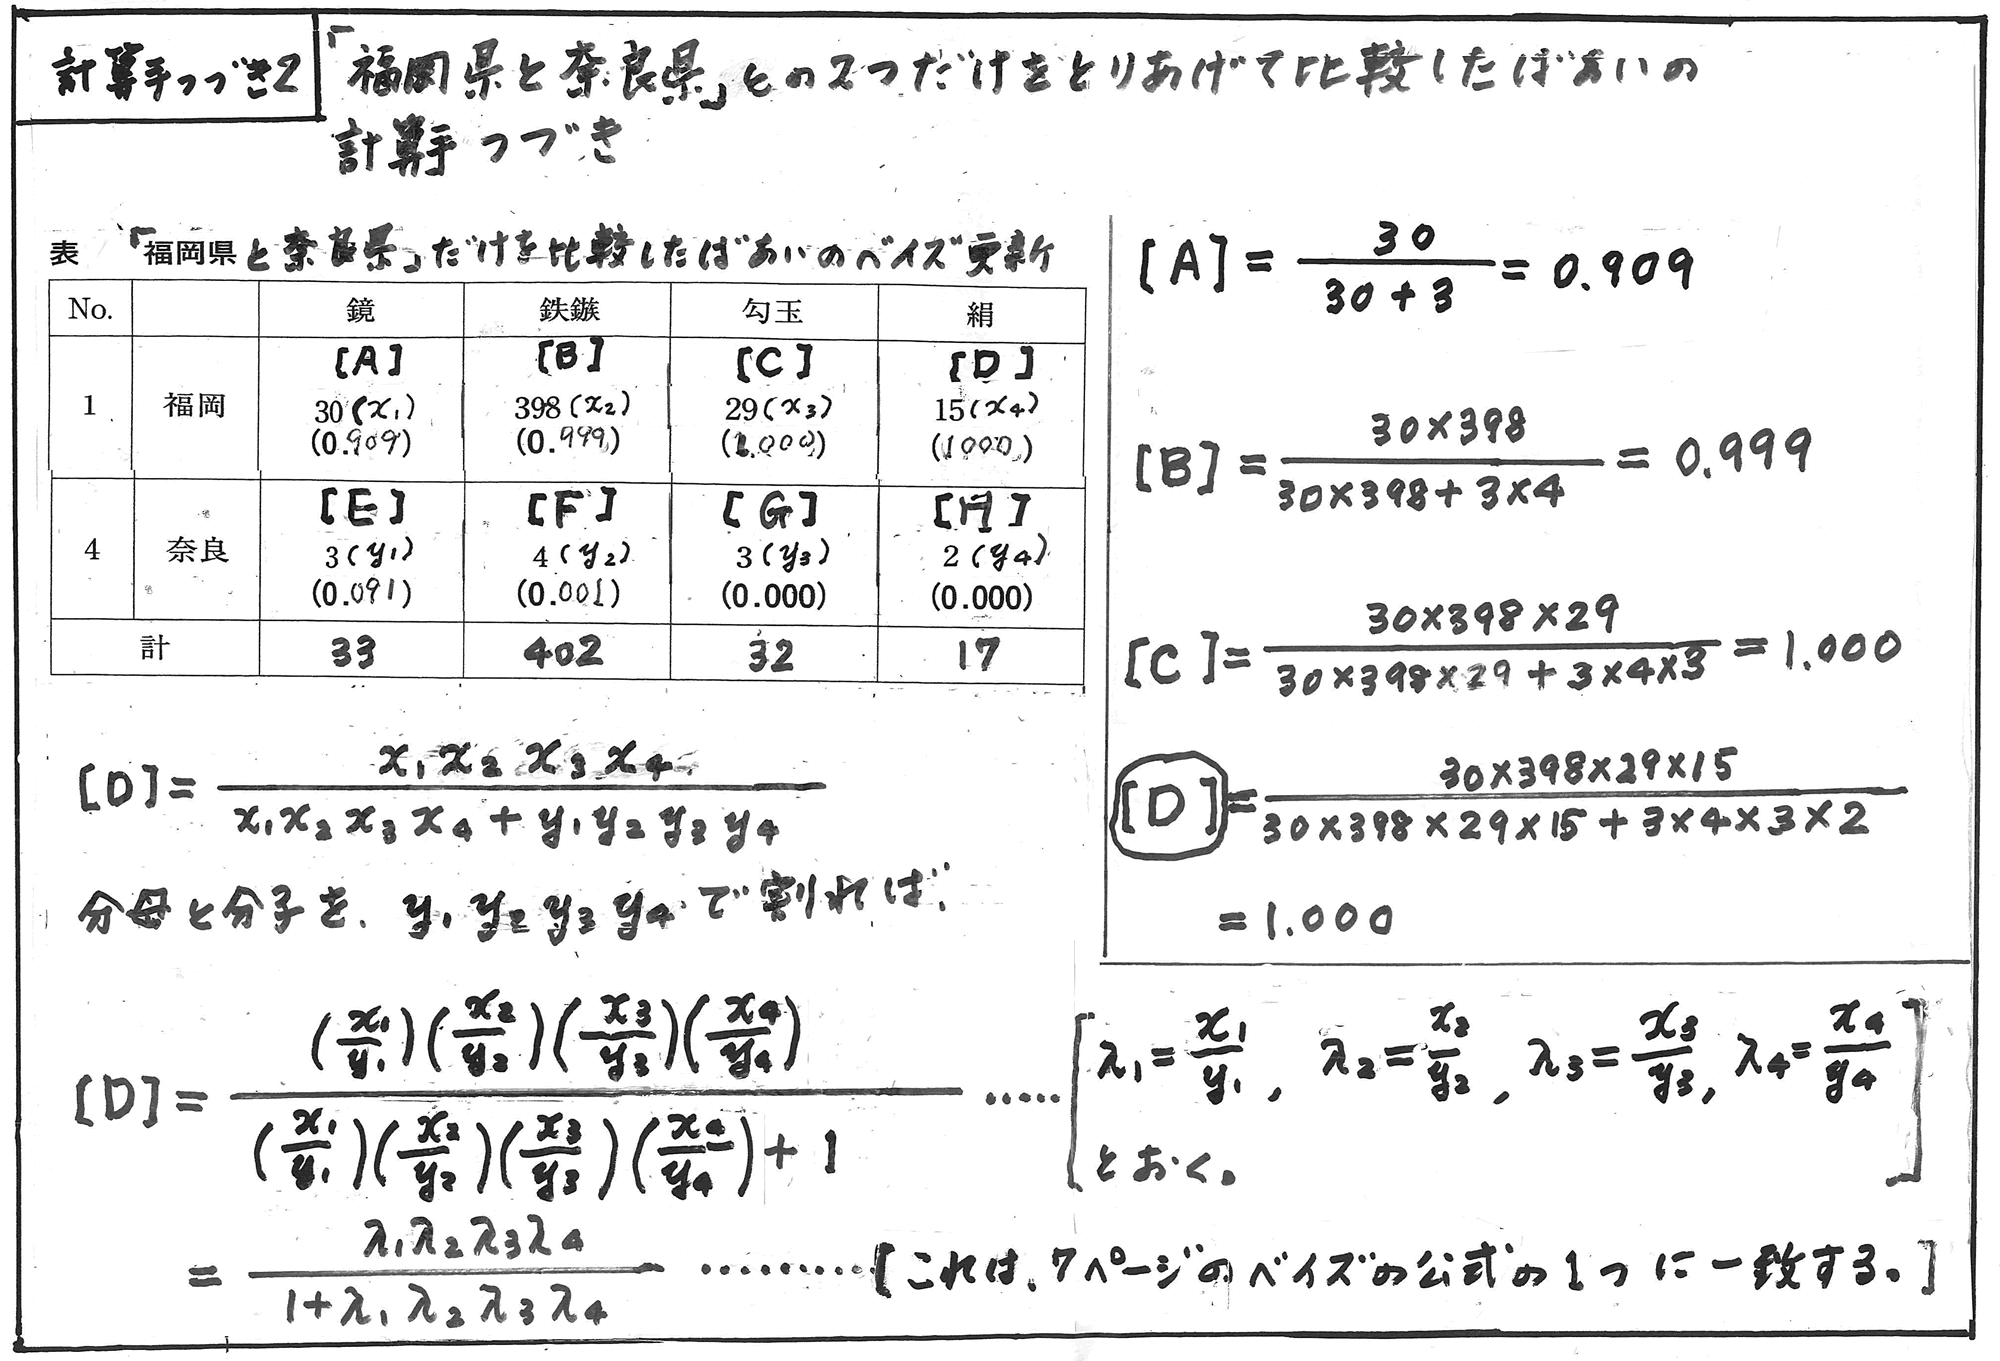 計算手つづき2
「福岡県と奈良県」との2つだけをとりあげて比較したばあいの
計算手つづき
表 「福岡県と奈良県」だけを比較したばあいのベイズ更新
No. 鏡 鉄鏃 勾玉 絹
[A] [B] [C] [D]
1 福岡 30(x₁) 398(x₂) 29(x₃) 15(x₄)
(0.909) (0.999) (1.000) (1000)
[E] [F] [G] [H]
4 奈良 3(y₁) 4(y₂) 3(y₃) 2(y₄)
(0.091) (0.001) (0.000) (0.000)
計 33 402 32 17
[A] = 30 / (30+3) = 0.909
[B] = 30×398 / (30×398+3×4) = 0.999
[C] = 30×398×29 / (30×398×29+3×4×3) = 1.000
[D] = 30×398×29×15 / (30×398×29×15+3×4×3×2)
= 1.000
[D] = x₁x₂x₃x₄ / (x₁x₂x₃x₄+y₁y₂y₃y₄)
分母と分子を、y₁y₂y₃y₄で割れば、
[D] = (x₁/y₁)(x₂/y₂)(x₃/y₃)(x₄/y₄) / ((x₁/y₁)(x₂/y₂)(x₃/y₃)(x₄/y₄)+1) ‥‥‥[λ₁=x₁/y₁, λ₂=x₂/y₂, λ₃=x₃/y₃, λ₄=x₄/y₄
とおく。]
= λ₁λ₂λ₃λ₄ / (1+λ₁λ₂λ₃λ₄) ‥‥‥‥‥[これは、7ページのベイズの公式の1つに一致する。]